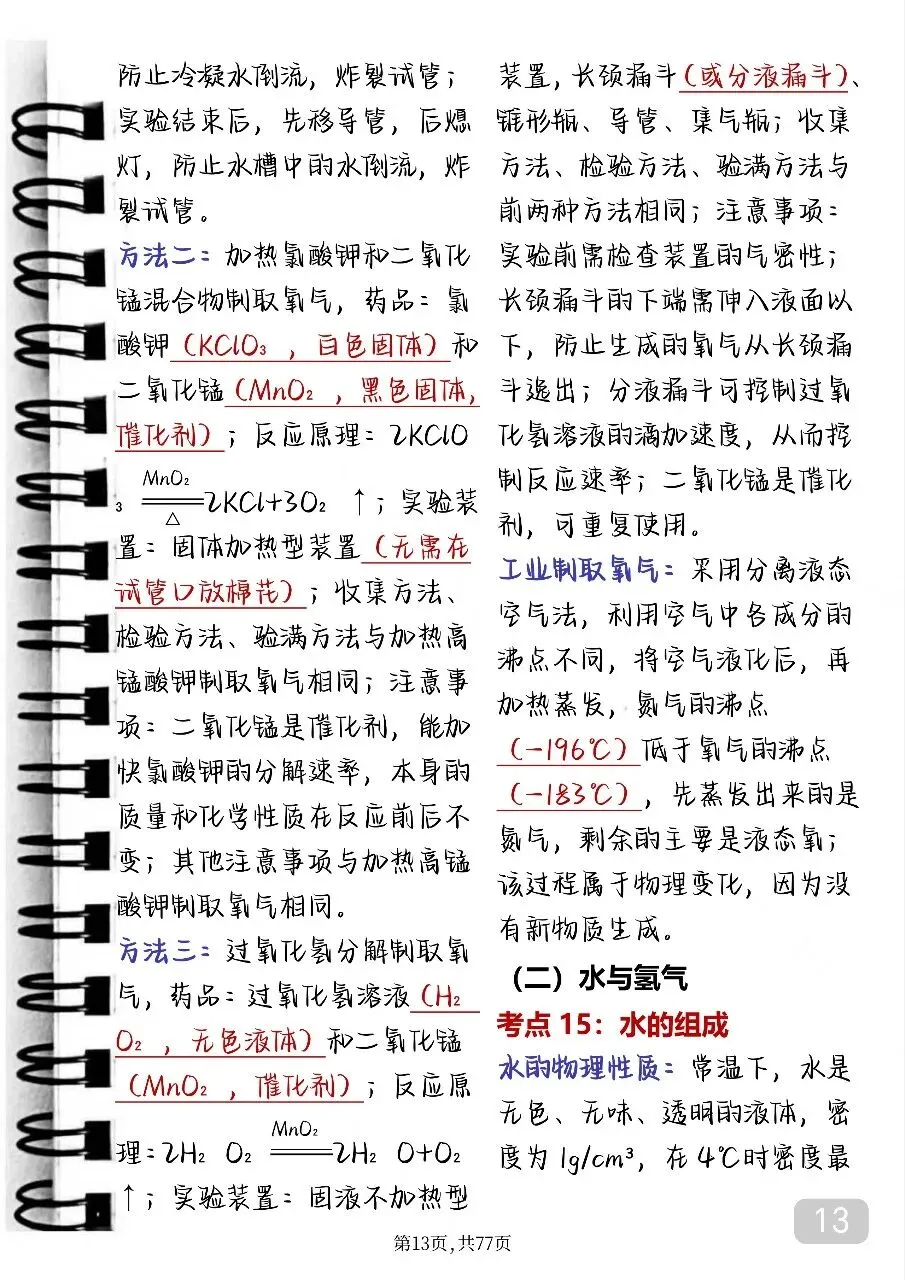 防止冷凝水倒流，炸裂试管；
实验结束后，先移导管，后熄
灯，防止水槽中的水倒流，炸
裂试管。
方法二：加热氯酸钾和二氧化
锰混合物制取氧气，药品：氯
酸钾（KClO₃ ，白色固体）和
二氧化锰（MnO₂ ，黑色固体，
催化剂）；反应原理：2KClO
MnO₂
₃ ══ 2KCl+3O₂ ↑；实验装
△
置：固体加热型装置（无需在
试管口放棉花）；收集方法、
检验方法、验满方法与加热高
锰酸钾制取氧气相同；注意事
项：二氧化锰是催化剂，能加
快氯酸钾的分解速率，本身的
质量和化学性质在反应前后不
变；其他注意事项与加热高锰
酸钾制取氧气相同。
方法三：过氧化氢分解制取氧
气，药品：过氧化氢溶液（H₂
O₂ ，无色液体）和二氧化锰
（MnO₂ ，催化剂）；反应原
MnO₂
理：2H₂ O₂ ══ 2H₂ O+O₂
↑；实验装置：固液不加热型
装置，长颈漏斗（或分液漏斗）、
锥形瓶、导管、集气瓶；收集
方法、检验方法、验满方法与
前两种方法相同；注意事项：
实验前需检查装置的气密性；
长颈漏斗的下端需伸入液面以
下，防止生成的氧气从长颈漏
斗逸出；分液漏斗可控制过氧
化氢溶液的滴加速度，从而控
制反应速率；二氧化锰是催化
剂，可重复使用。
工业制取氧气：采用分离液态
空气法，利用空气中各成分的
沸点不同，将空气液化后，再
加热蒸发，氮气的沸点
（-196℃）低于氧气的沸点
（-183℃），先蒸发出来的是
氮气，剩余的主要是液态氧；
该过程属于物理变化，因为没
有新物质生成。
（二）水与氢气
考点 15：水的组成
水的物理性质：常温下，水是
无色、无味、透明的液体，密
度为 1g/cm³，在 4℃时密度最
13
第13页,共77页